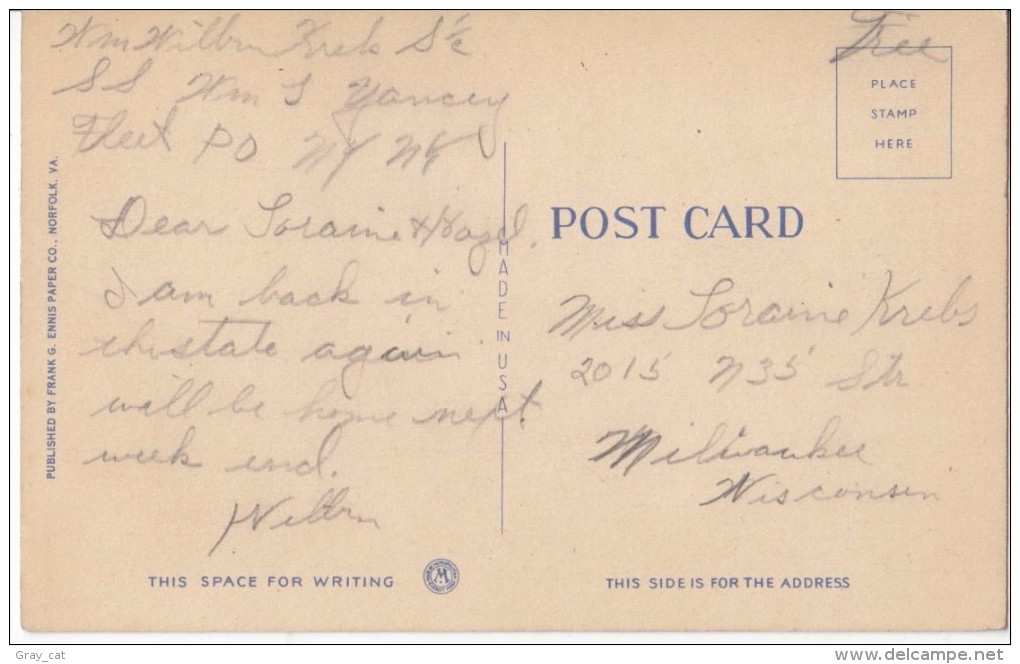 Wm Wilbur Krebs S 1/c
SS Wm L Yancey
Fleet PO NY NY
Free
PLACE
STAMP
HERE
PUBLISHED BY FRANK G. ENNIS PAPER CO., NORFOLK, VA.
Dear Loraine & Hazel.
I am back in
the state again
will be home next
week end.
Wilbur
MADE IN USA
POST CARD
Miss Loraine Krebs
2015 N 35 Str
Milwaukee
Wisconsin
THIS SPACE FOR WRITING
THIS SIDE IS FOR THE ADDRESS
Gray_cat
www.delcampe.net